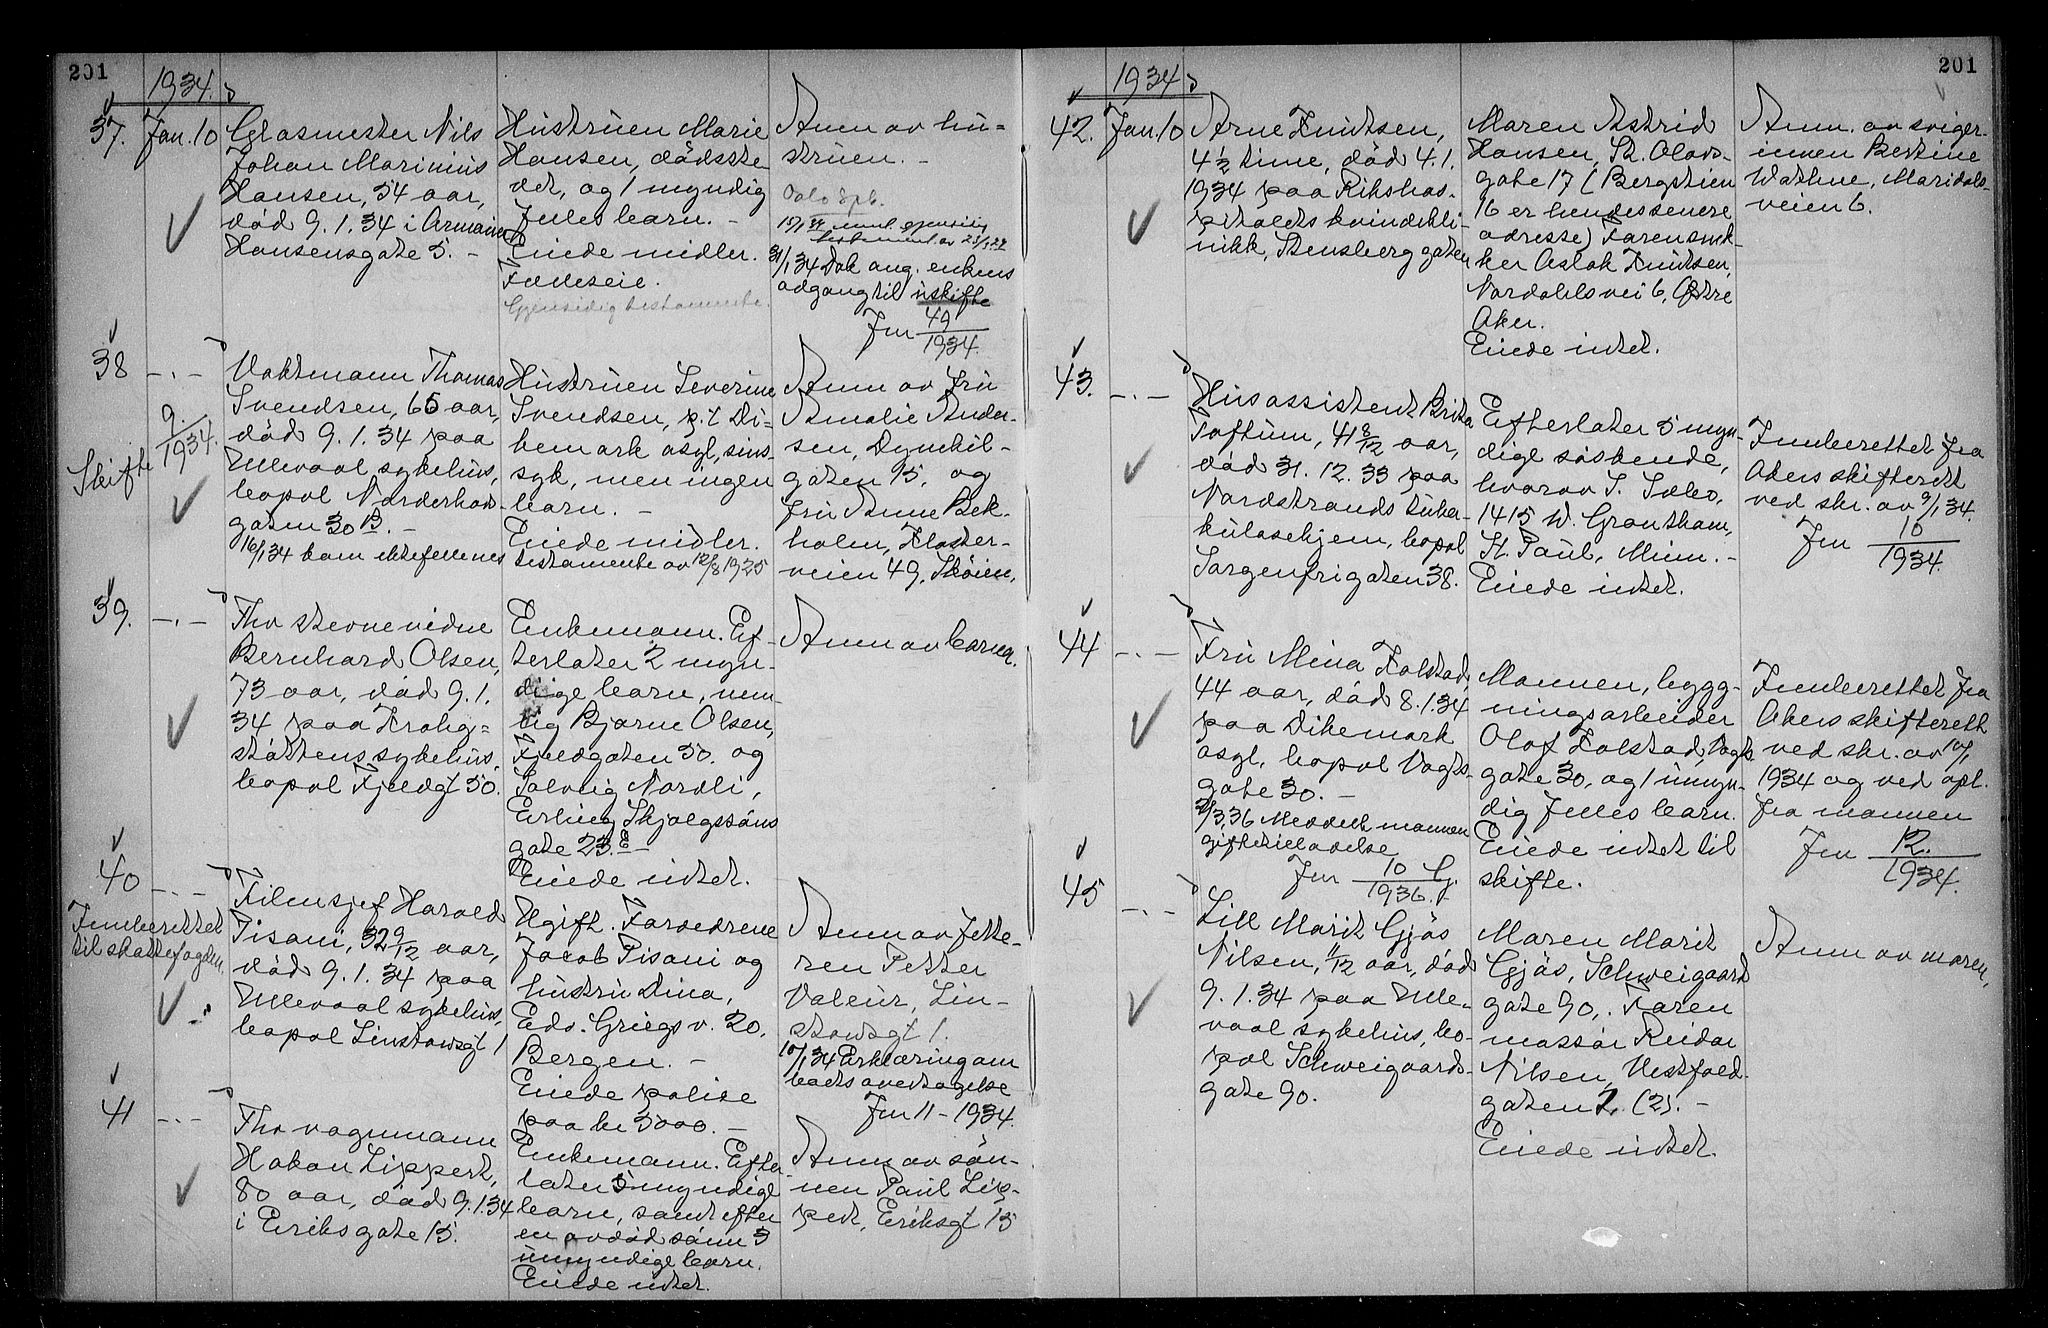 201
1934.
37. Jan. 10
Glasmester Nils
Johan Marinius
Hansen, 54 aar,
død 9.1.34 i Armauer
Hansensgate 5. -
Hustruen Marie
Hansen, dødsste-
det, og 1 myndig
fælles barn. -
Eiede midler.
Fælleseie.
Gjensidig testamente.
Anm av hu-
struen. -
Oslo Spb.
31/1 34 Dok ang. enkens
adgang til uskifte
Jnr 49/1934.
38 -.-
Skifte 9./1934.
Vaktmann Thomas
Svendsen, 65 aar,
død 9.1.34 paa
Ullevaal sykehus,
bopæl Norderhovs-
gaten 30 B. -
16/1 34 kom ektefellenes testamente av 12/8 1925
Hustruen Severine
Svendsen, p.t. Di-
kemark asyl, sinns-
syk, men ingen
barn. -
Eiede midler.
Anm av fru
Amalie Ander-
sen, Dynekil-
gaten 15, og
fru Anne Bek-
holm, Kloster-
veien 49, Skøien.
39. -.-
Fhv stevnevidne
Bernhard Olsen,
73 aar, død 9.1.
34 paa Krohg-
støttens sykehus,
bopæl Fjeldgt 50.
Enkemann. Ef-
terlater 2 myn-
dige barn, nem-
lig Bjarne Olsen,
Fjeldgaten 50. og
Solveig Nordli,
Erling Skjalgssøns
gate 23 E -
Eiede intet.
Anm av barna.
40 -.-
Innberettet
til skattefogden.
Filmsjef Harald
Pisani, 32 9/12 aar,
død 9.1.34 paa
Ullevaal sykehus,
bopæl Linstowsgt 1
Ugift. Forældrene
Jacob Pisani og
hustru Dina,
Edv. Griegs v. 20,
Bergen. -
Eiede polise
paa kr 5000. -
Anm av fette-
ren Petter
Valeur, Lin-
stowsgt 1.
10/1 34 Erklæring om
boets overtagelse
Jnr 11 - 1934.
41 -.-
Fhv vognmann
Hakon Lippert,
80 aar, død 9.1.34
i Eriksgate 15.
Enkemann. Efter-
later 5 myndige
barn, samt efter
en avdød sønn 3
umyndige barn.
Eiede intet.
Anm av søn-
nen Paul Lip-
pert, Eriksgt 15
201
1934
42. Jan. 10
Arne Knutsen,
4 1/2 time, død 4.1.
1934 paa Rikshos-
pitalets kvindekli-
nikk, Stensberggaten
Moren Astrid
Hansen, St. Olavs-
gate 17 (Bergstien
16 er hendes senere
adresse) Faren snek-
ker Aslak Knutsen,
Nordahls vei 6, Østre
Aker.
Eiede intet.
Anm. av sviger-
innen Bertine
Wathne, Maridals-
veien 6.
43. -.-
Husassistent Brita
Toftum, 41 8/12 aar,
død 31.12.33 paa
Nordstrands tuber-
kulosehjem, bopæl
Sorgenfrigaten 38.
Efterlater 5 myn-
dige søskende,
hvorav S. Sæbo,
1415 W. Grantham,
St. Paul, Minn. -
Eiede intet.
Innberettet fra
Akers skifterett
ved skr. av 9/1 34.
Jnr 10/1934.
44 -.-
Fru Mina Kolstad,
44 aar, død 8.1.34
paa Dikemark
asyl, bopæl Vogts-
gate 30. -
2/3 36 Meddelt mannen
giftetilladelse
Jnr 10/1936. G.
Mannen, bygg-
ningsarbeider
Olaf Kolstad, Vogts
gate 30, og 1 umyn-
dig fælles barn.
Eiede intet til
skifte.
Innberettet fra
Akers skifterett
ved skr. av 10/1
1934 og ved opl.
fra mannen
Jnr 12./1934.
45 -.-
Lill Marit Gjøs
Nilsen, 11/12 aar, død
9.1.34 paa Ulle-
vaal sykehus, bo-
pæl Schweigaards-
gate 90.
Moren Marit
Gjøs, Schweigaards
gate 90,. Faren
massør Reidar
Nilsen, Vestfold-
gaten 2 (2). -
Eiede intet.
Anm av moren.